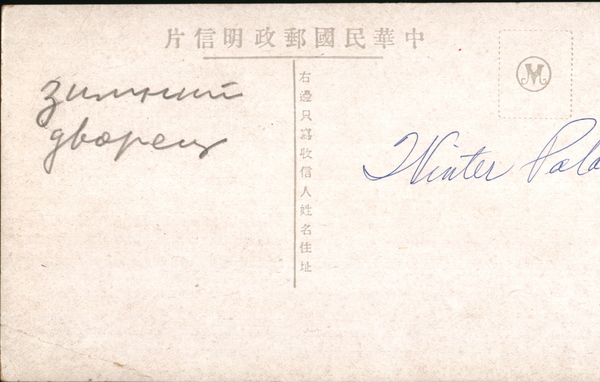 中華民國郵政明信片
右邊只寫收信人姓名住址
зимний
дворец
Winter Pala
M